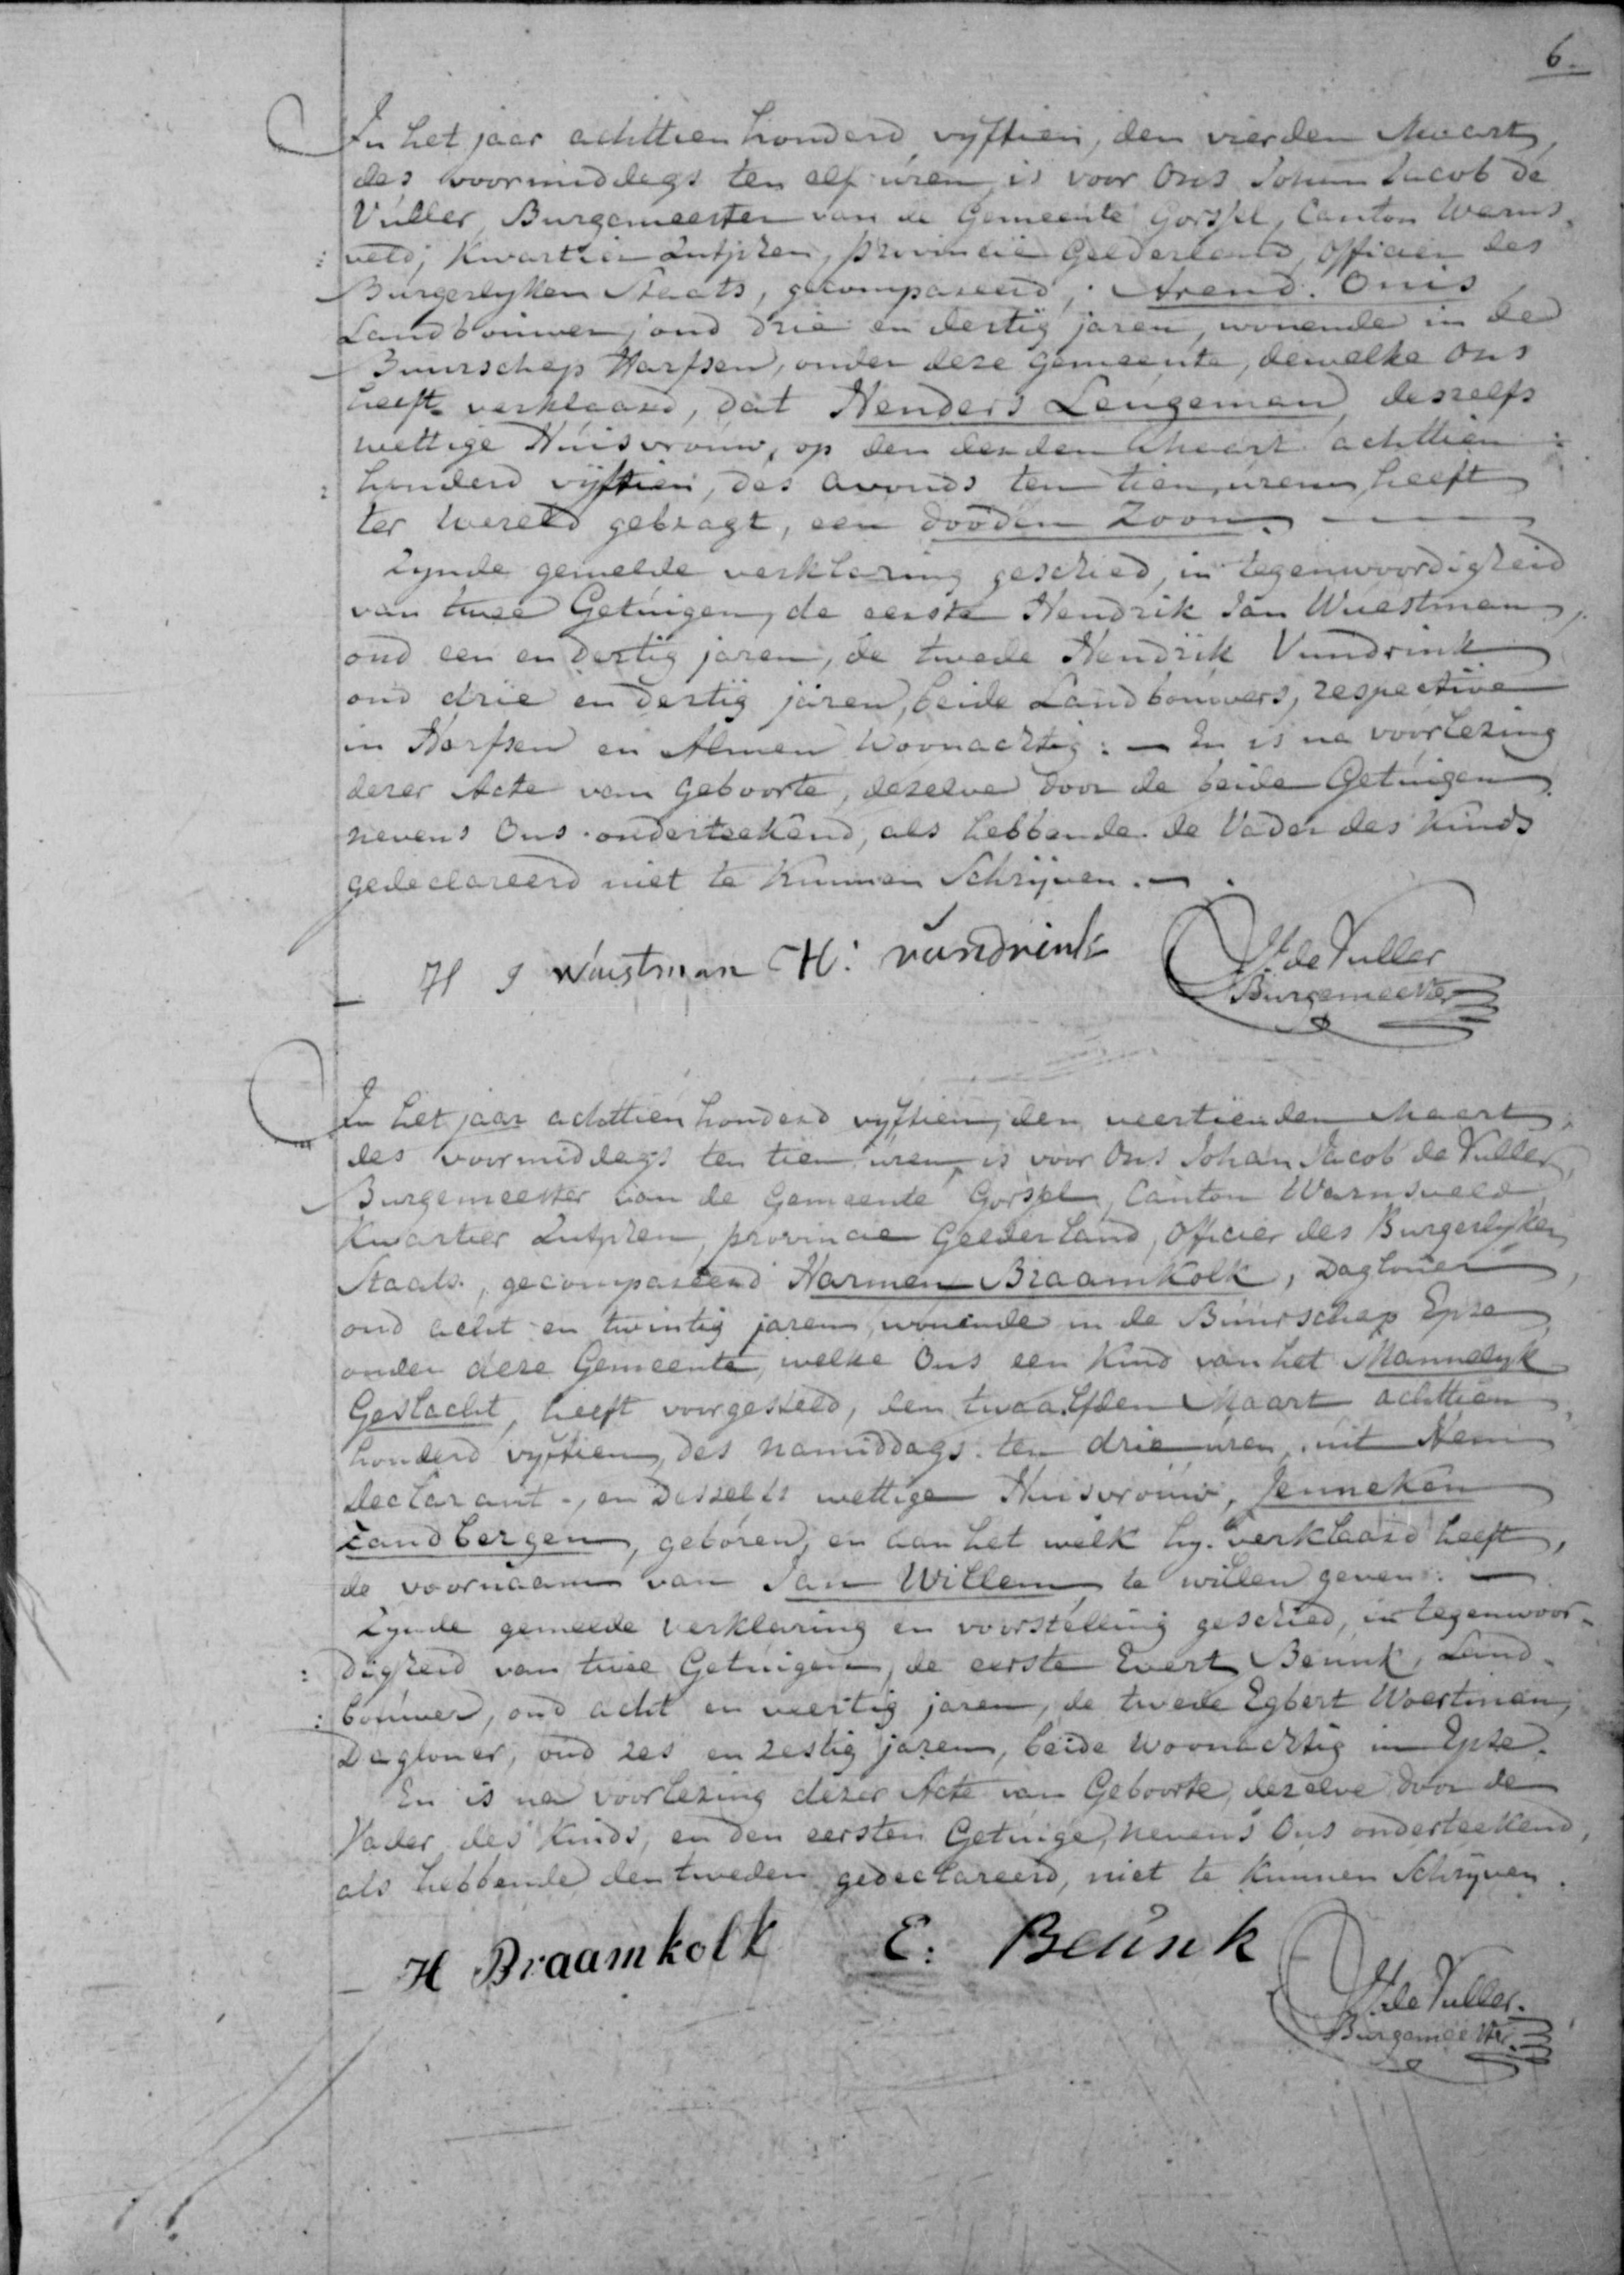 6.
In het jaar achttien honderd vyftien, den vierden Maart,
des voormiddags ten elf uren, is voor Ons Johan Jacob de
Vuller, Burgemeester van de Gemeente Gorssel, Canton Warns-
:veld, Kwartier Zutphen, provincie Gelderland, Officier des
Burgerlyken Staats, gecompareerd, Arend Onis
Landbouwer, oud drie en dertig jaren, wonende in de
Buurschap Harfsen, onder deze gemeente, dewelke Ons
heeft verklaard, dat Henders Lengeman, deszelfs
wettige Huisvrouw, op den derden Maart achttien :
: honderd vyftien, des avonds ten tien uren, heeft
ter wereld gebragt, een dooden Zoon. —
Zynde gemelde verklaring geschied, in tegenwoordigheid
van twee Getuigen, de eerste Hendrik Jan Wuestman,
oud een en dertig jaren, de twede Hendrik Vundrink
oud drie en dertig jaren, beide Landbouwers, respective
in Harfsen en Almen Woonachtig: — En is na voorlezing
dezer Acte van Geboorte, dezelve door de beide Getuigen
nevens Ons onderteekend, als hebbende de Vader des kinds
gedeclareerd niet te kunnen Schryven. —
H J Wuestman H: vundrink de Vuller
Burgemeester
In het jaar achttien honderd vyftien, den veertienden Maart,
des voormiddags ten tien uren, is voor Ons Johan Jacob de Vuller,
Burgemeester van de Gemeente Gorssel, Canton Warnsveld,
Kwartier Zutphen, provincie Gelderland, Officier des Burgerlyken
Staats, gecompareerd Harmen Braamkolk, Dagloner
oud acht en twintig jaren, wonende in de Buurschap Epse
onder deze Gemeente, welke Ons een Kind van het Mannelyk
Geslacht, heeft voorgesteld, den twaalfden Maart achttien
honderd vyftien, des namiddags ten drie uren, uit Hem
declarant, en deszelfs wettige Huisvrouw, Jenneken
Zandbergen, geboren, en aan het welk hy verklaard heeft,
de voornaam van Jan Willem te willen geven: —
Zynde gemelde verklaring en voorstelling geschied, in tegenwoor-
: digheid van twee Getuigen, de eerste Evert Beunk, Land-
: bouwer, oud acht en veertig jaren, de twede Egbert Woertman,
Dagloner, oud zes en zestig jaren, beide woonachtig in Epse.
En is na voorlezing dezer Acte van Geboorte, dezelve door de
Vader des Kinds, en den eersten Getuige, nevens Ons onderteekend,
als hebbende den tweden gedeclareerd, niet te kunnen Schryven.
H Braamkolk E: Beunk
de Vuller.
Burgemeester.